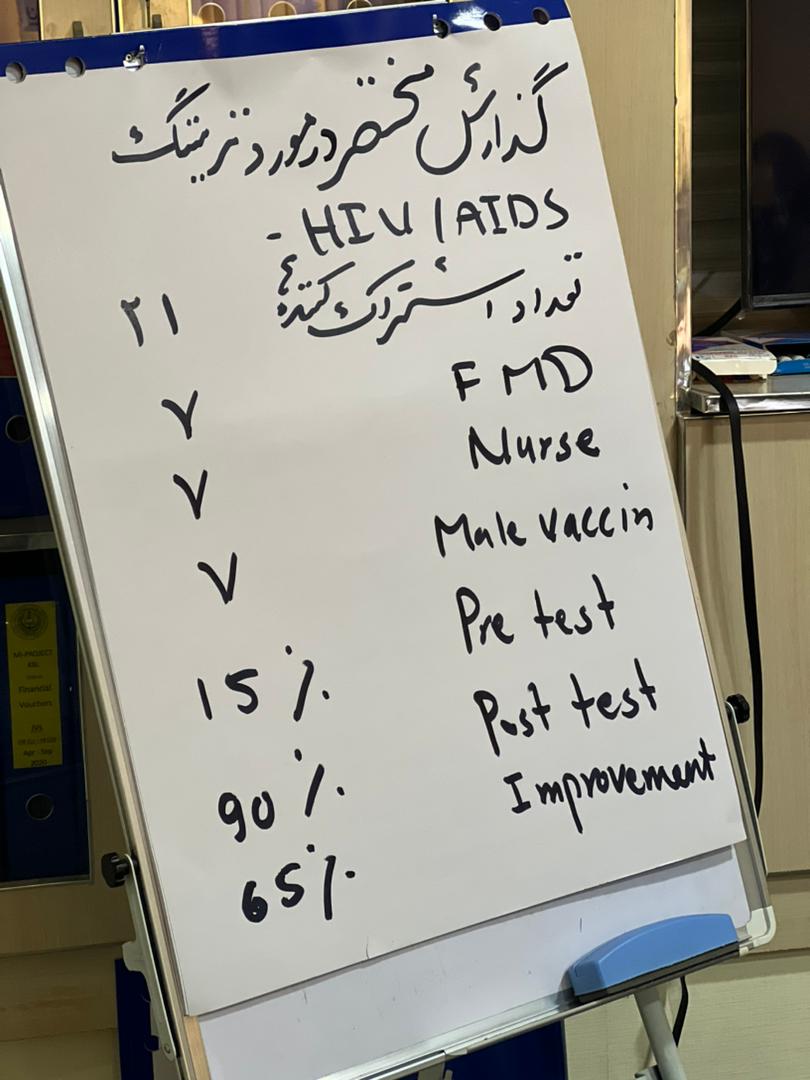 گذارش مختصر در مورد تریننگ
HIV / AIDS -
تعداد اشتراک کننده ۲۱
FMD ۷
Nurse ۷
Male vaccin ۷
Pre test 15 ٪
Post test 90 ٪
Improvement 65 ٪
MI-PROJECT
KBL
Financial
Vouchers
Apr - Sep
2020